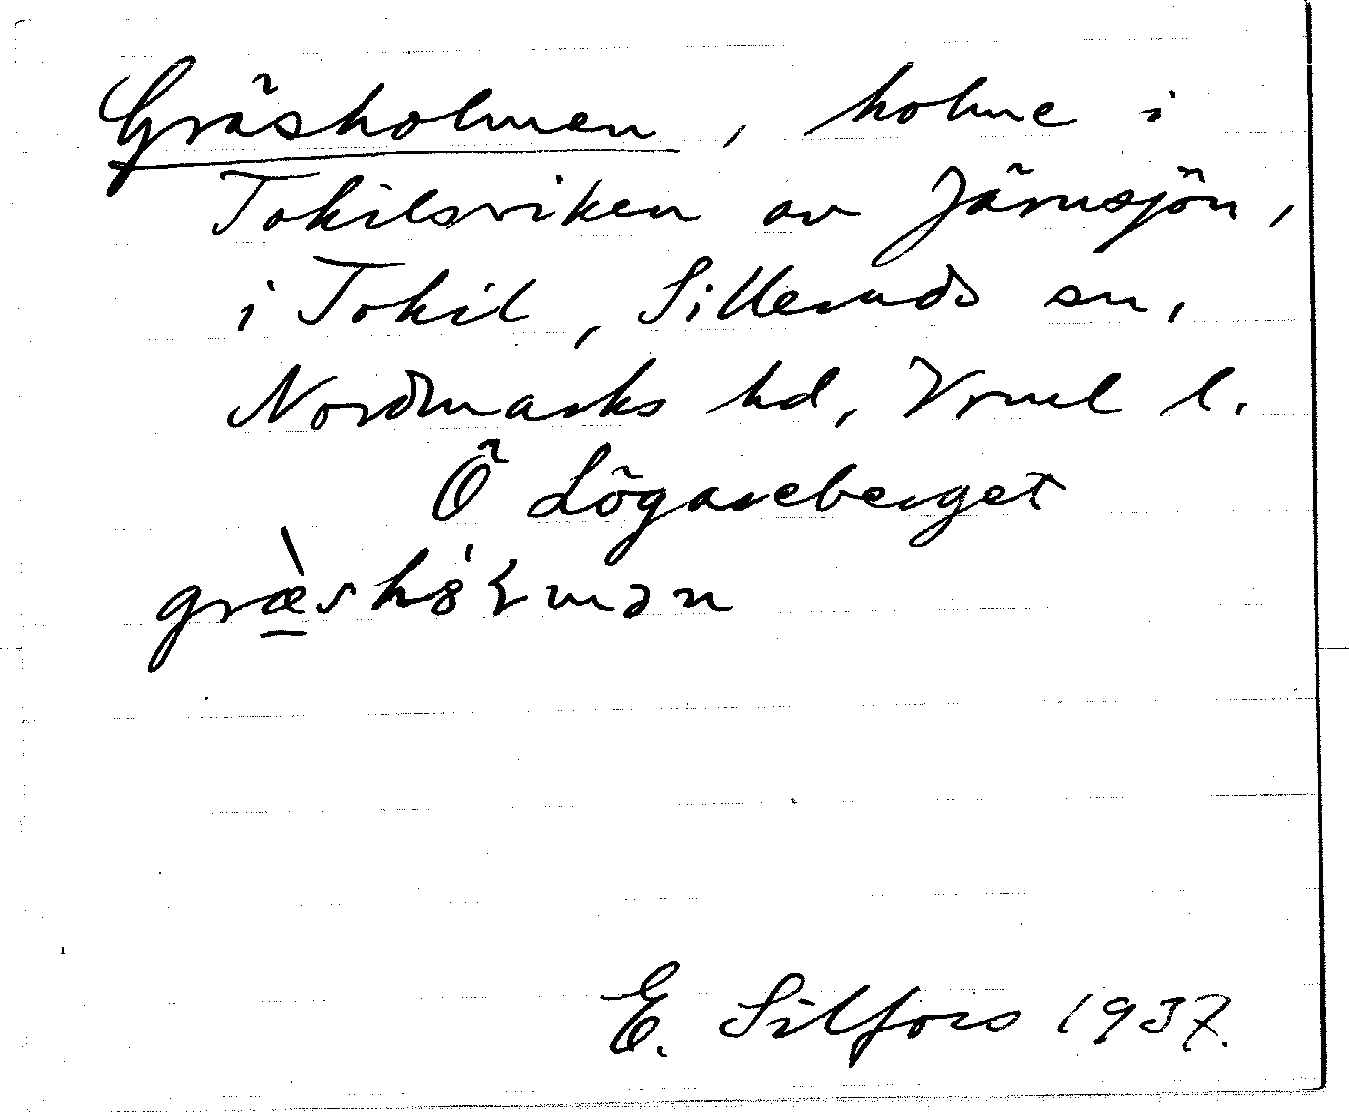 Gräsholmen, holme i
Tokilsviken av Järnsjön,
i Tokil, Silleruds sn,
Nordmarks hd, Vrml l.
Ö Lögareberget
E. Silfors 1937.